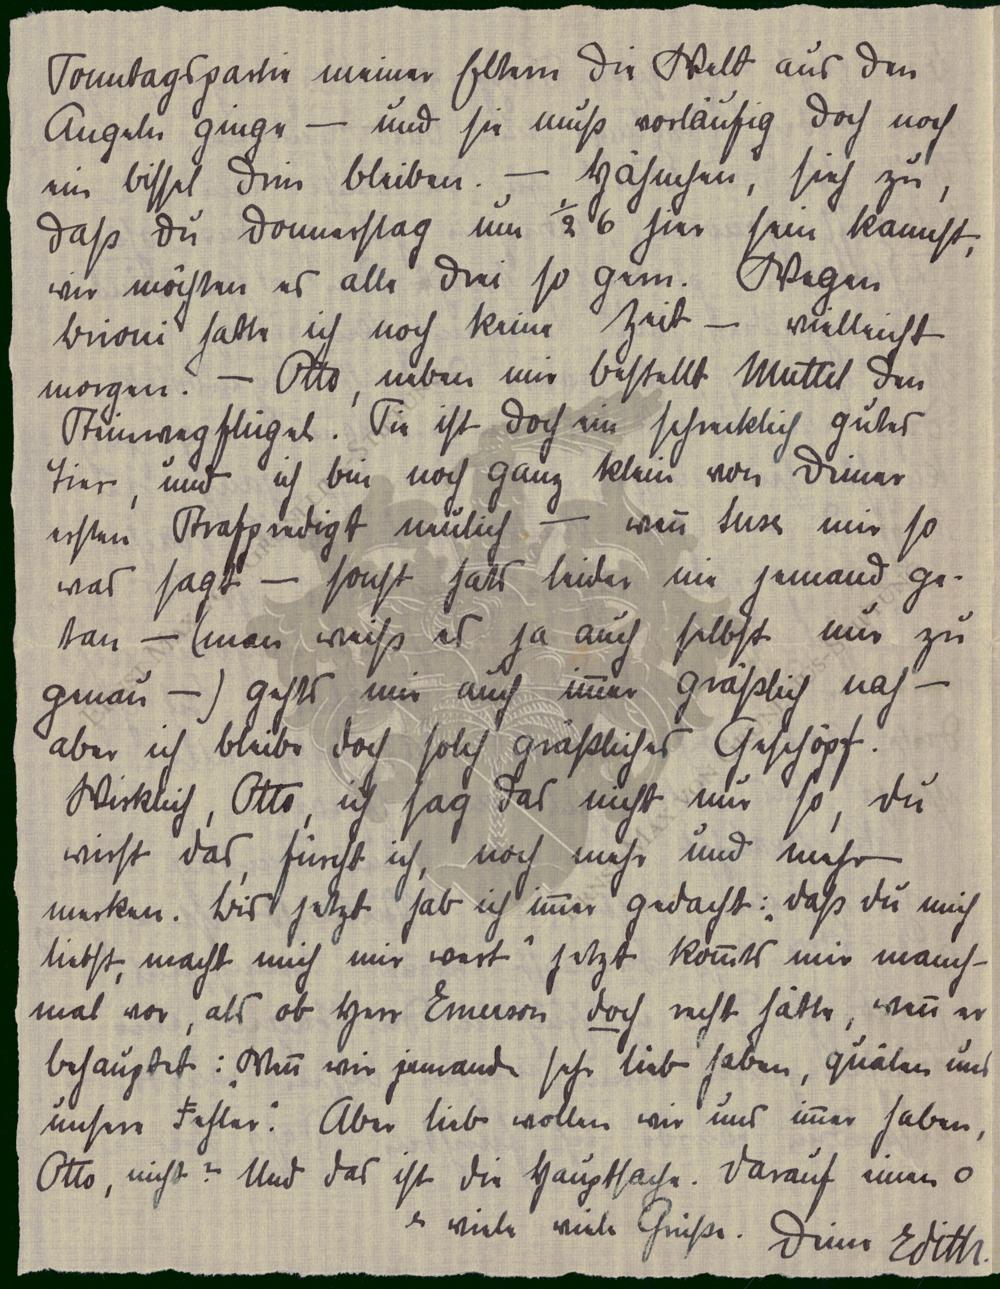 Sonntagspartie meiner Eltern die Welt aus den
Angeln ginge — und sie muß vorläufig doch noch
ein bissel drin bleiben. — Hähnchen, sieh zu,
daß du Donnerstag um ½ 6 hier sein kannst,
wir möchten es alle drei so gern. Wegen
Brioni hatte ich noch keine Zeit — vielleicht
morgen. — Otto, neben mir bestellt Muttel den
Steinwegflügel. Sie ist doch ein schrecklich gutes
Tier, und ich bin noch ganz klein von Deiner
ersten Strafpredigt neulich — weñ mir so
was sagt — sonst hats leider nie jemand ge-
tan — (man weiß es ja auch selbst nur zu
genau —) gehts mir auch im̃er gräßlich nah —
aber ich bleibe doch solch gräßliches Geschöpf.
Wirklich, Otto, ich sag das nicht nur so, du
wirst das, fürcht ich, noch mehr und mehr
merken. Bis jetzt hab ich im̃er gedacht: „daß du mich
liebst, macht mich mir wert“ jetzt kom̃ts mir manch-
mal vor, als ob Herr Emerson doch recht hätte, weñ er
behauptet: „Weñ wir jemande sehr lieb haben, quälen uns
unsere Fehler“. Aber lieb wollen wir uns im̃er haben,
Otto, nicht? Und das ist die Hauptsache. Darauf einen o
viele viele Grüße. Deine Edith.